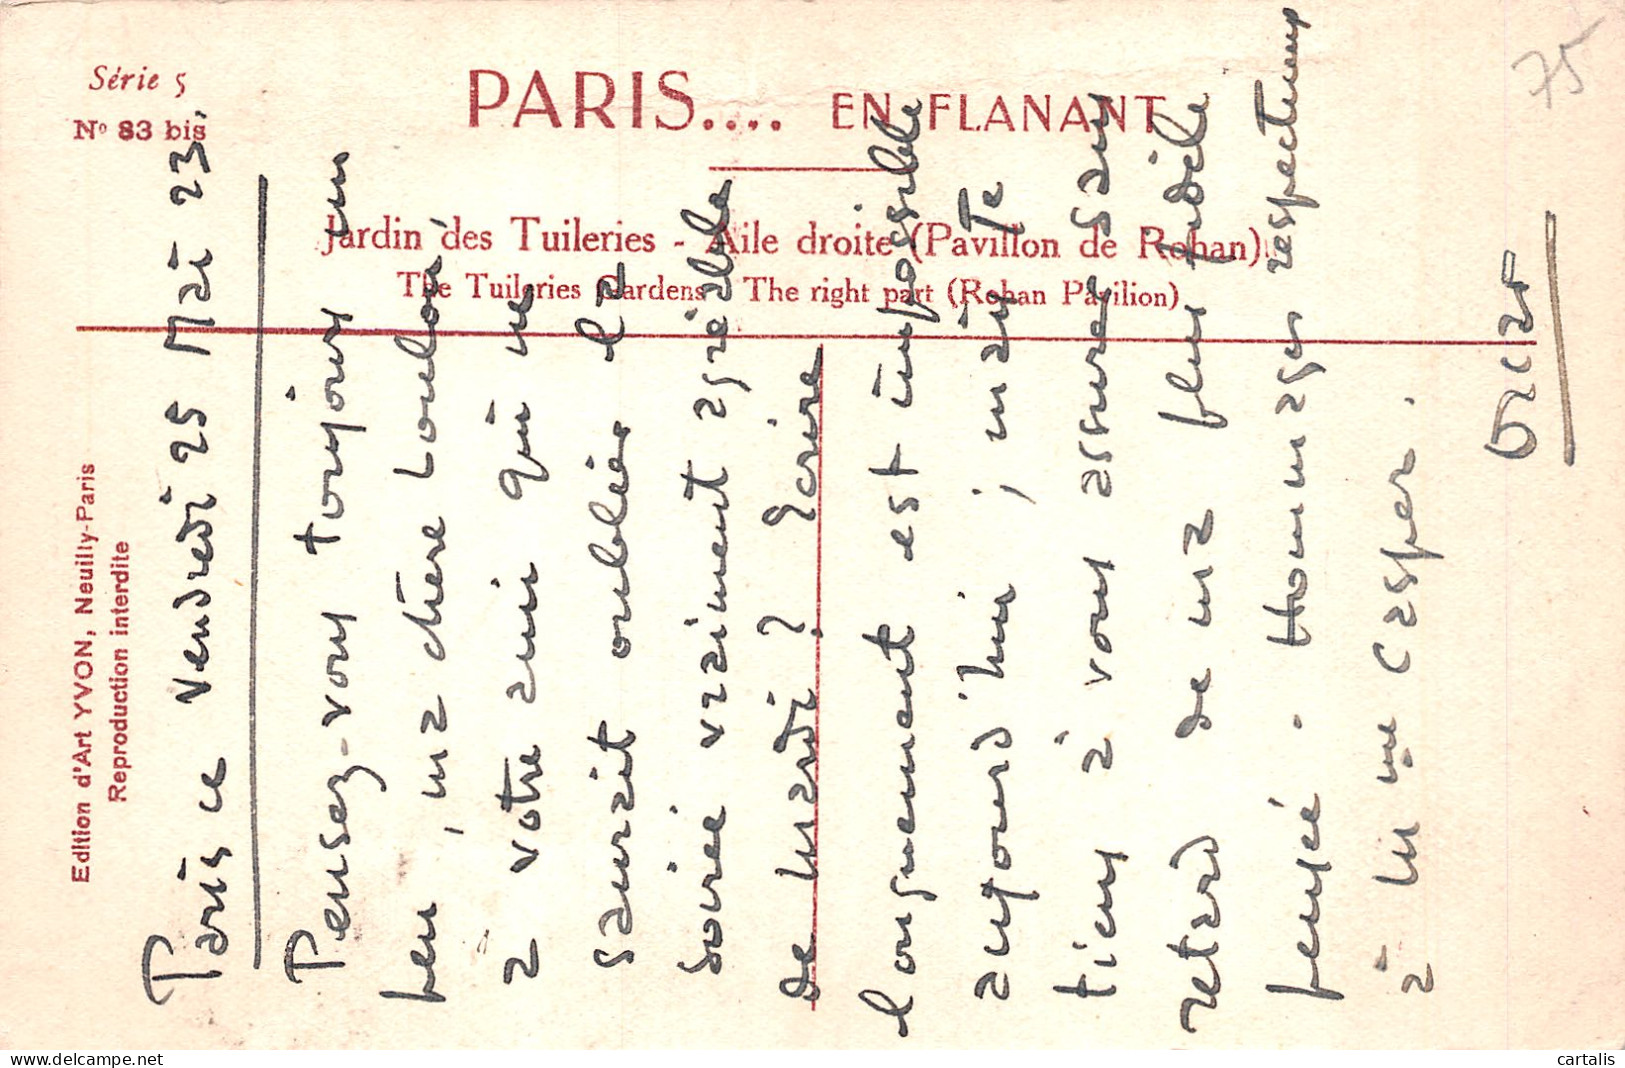 Série 5
Nº 83 bis
PARIS.... EN FLANANT
Jardin des Tuileries - Aile droite (Pavillon de Rohan)
The Tuileries Gardens - The right part (Rohan Pavilion)
Edition d'Art YVON, Neuilly-Paris
Reproduction interdite
75
Paris ce vendredi 25 Mai 23.
Pensez-vous toujours un
peu, ma chère Loulou,
à votre ami qui ne
saurait oublier la
soirée vraiment agréable
de mardi ? Ecrire
longuement est impossible
aujourd'hui ; mais je
tiens à vous assurer sans
retard de ma plus fidèle
pensée. Hommages respectueux
à Mme Casper.
cartalis